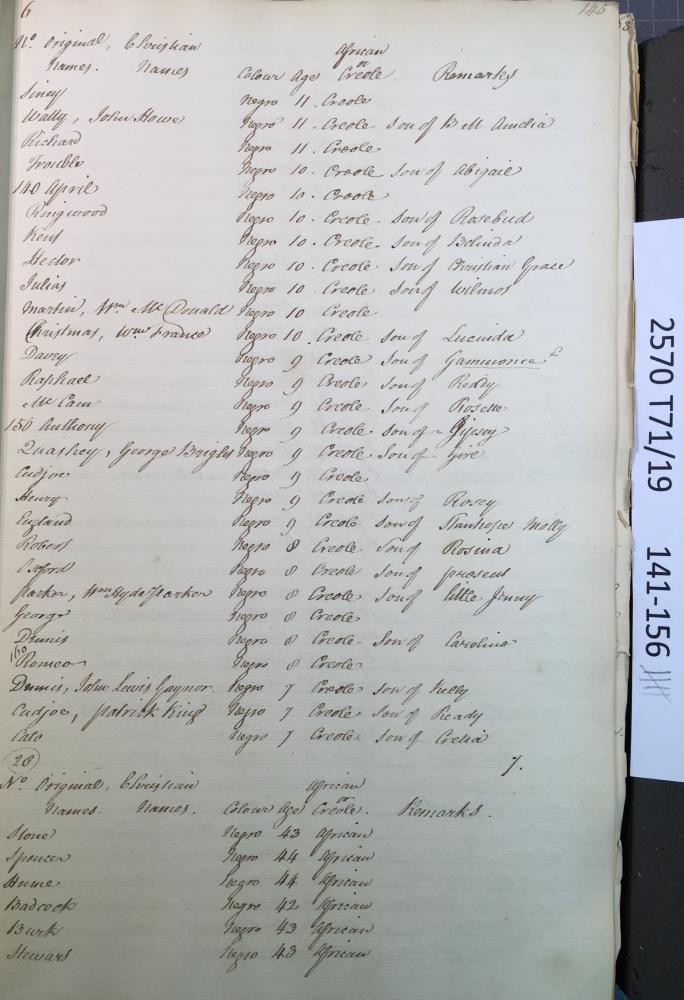 6 145
No. Original, Christian African
Names. Names Colour Age or Creole Remarks
Siney Negro 11. Creole
Wally, John Howe Negro 11. Creole Son of B M Amelia
Richard Negro 11. Creole
Trouble Negro 10. Creole Son of Abigail
140 April Negro 10. Creole
Ringwood Negro 10. Creole Son of Rosebud
Kent Negro 10. Creole Son of Belinda
Hector Negro 10. Creole Son of Christian Grace
Julias Negro 10. Creole Son of Wilmot
Martin, Wm. Mc.Donald Negro 10 Creole
Christmas, Wm France Negro 10. Creole Son of Lucinda
Davey Negro 9 Creole Son of
Raphael Negro 9 Creole Son of Reddy
Mc Cam Negro 9 Creole Son of Rosette
150 Anthony Negro 9 Creole Son of Gipsey
Quashey, George Bright Negro 9 Creole Son of
Cudjoe Negro 9 Creole
Henry Negro 9 Creole Son of Rosey
England Negro 9 Creole Son of Stanhope Molly
Robert Negro 8 Creole Son of Rosina
Oxford Negro 8 Creole Son of present
Parker, Wm Hyde Parker Negro 8 Creole Son of Little Jenny
George Negro 8 Creole
Dennis Negro 8 Creole Son of Caroline
160 Romeo Negro 8 Creole
Dennis, John Lewis Gaynor. Negro 7 Creole Son of Kelly
Cudjoe, Patrick King Negro 7 Creole Son of Ready
Cato Negro 7 Creole Son of Cretia
28 7.
No. Original, Christian African
Names. Names. Colour Age or Creole. Remarks.
Stone Negro 43 African
Spencer Negro 44 African
Hume Negro 44 African
Badcock Negro 42 African
Burk Negro 43 African
Stewart Negro 43 African
2570 T71/19 141-156